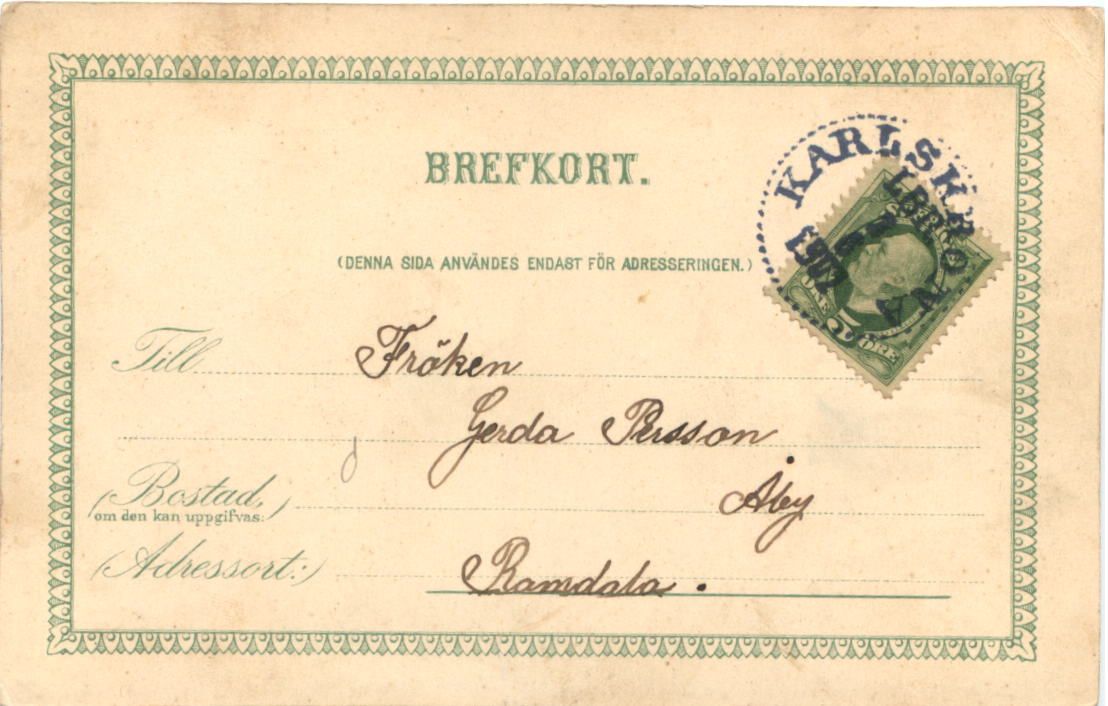 BREFKORT.
(DENNA SIDA ANVÄNDES ENDAST FÖR ADRESSERINGEN.)
KARLSKRONA
LBR
1902
SVERIGE
5
ÖRE
Till Fröken
Gerda Persson
(Bostad,)
om den kan uppgifvas:
Åby
(Adressort:) Ramdala.